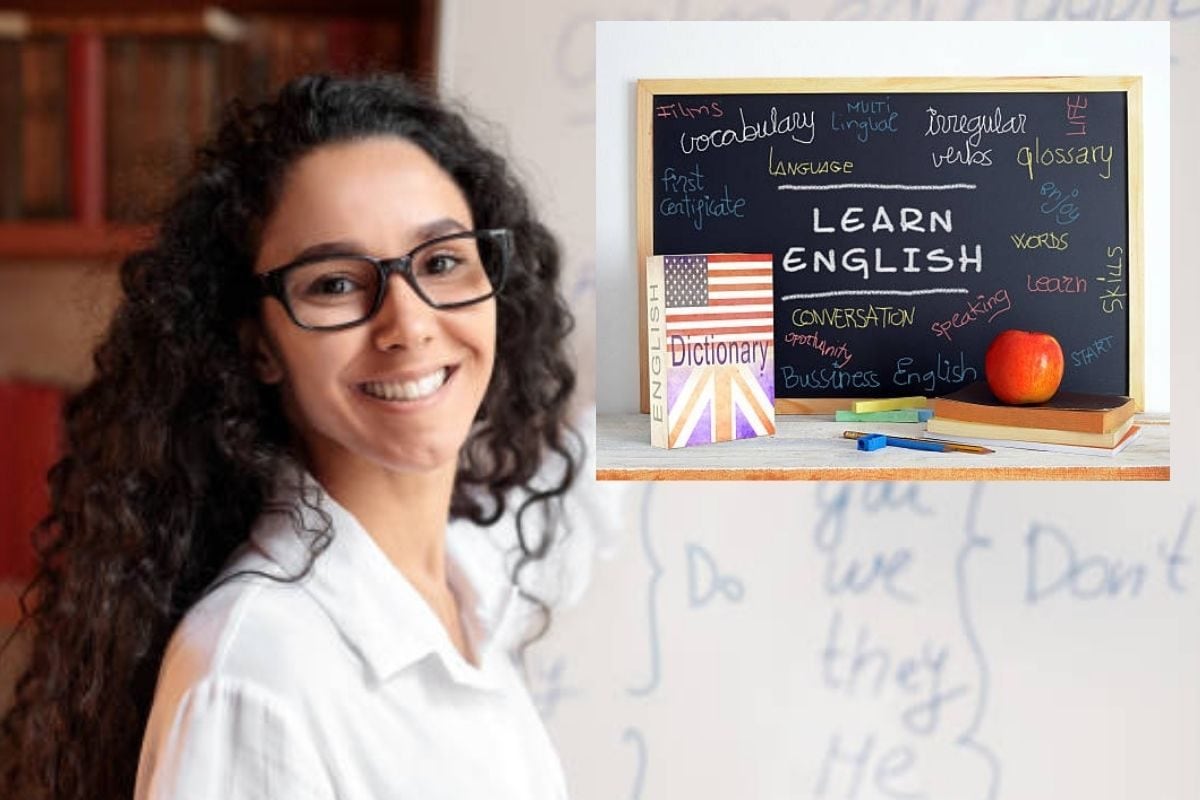 Films
vocabulary
MULTI
lingual
irregular
verbs
LIFE
glossary
LANGUAGE
first
certificate
enjoy
LEARN
ENGLISH
WORDS
Learn
Skills
CONVERSATION
speaking
oportunity
START
Bussiness English
ENGLISH
Dictionary
you
Do
we
Don't
they
He